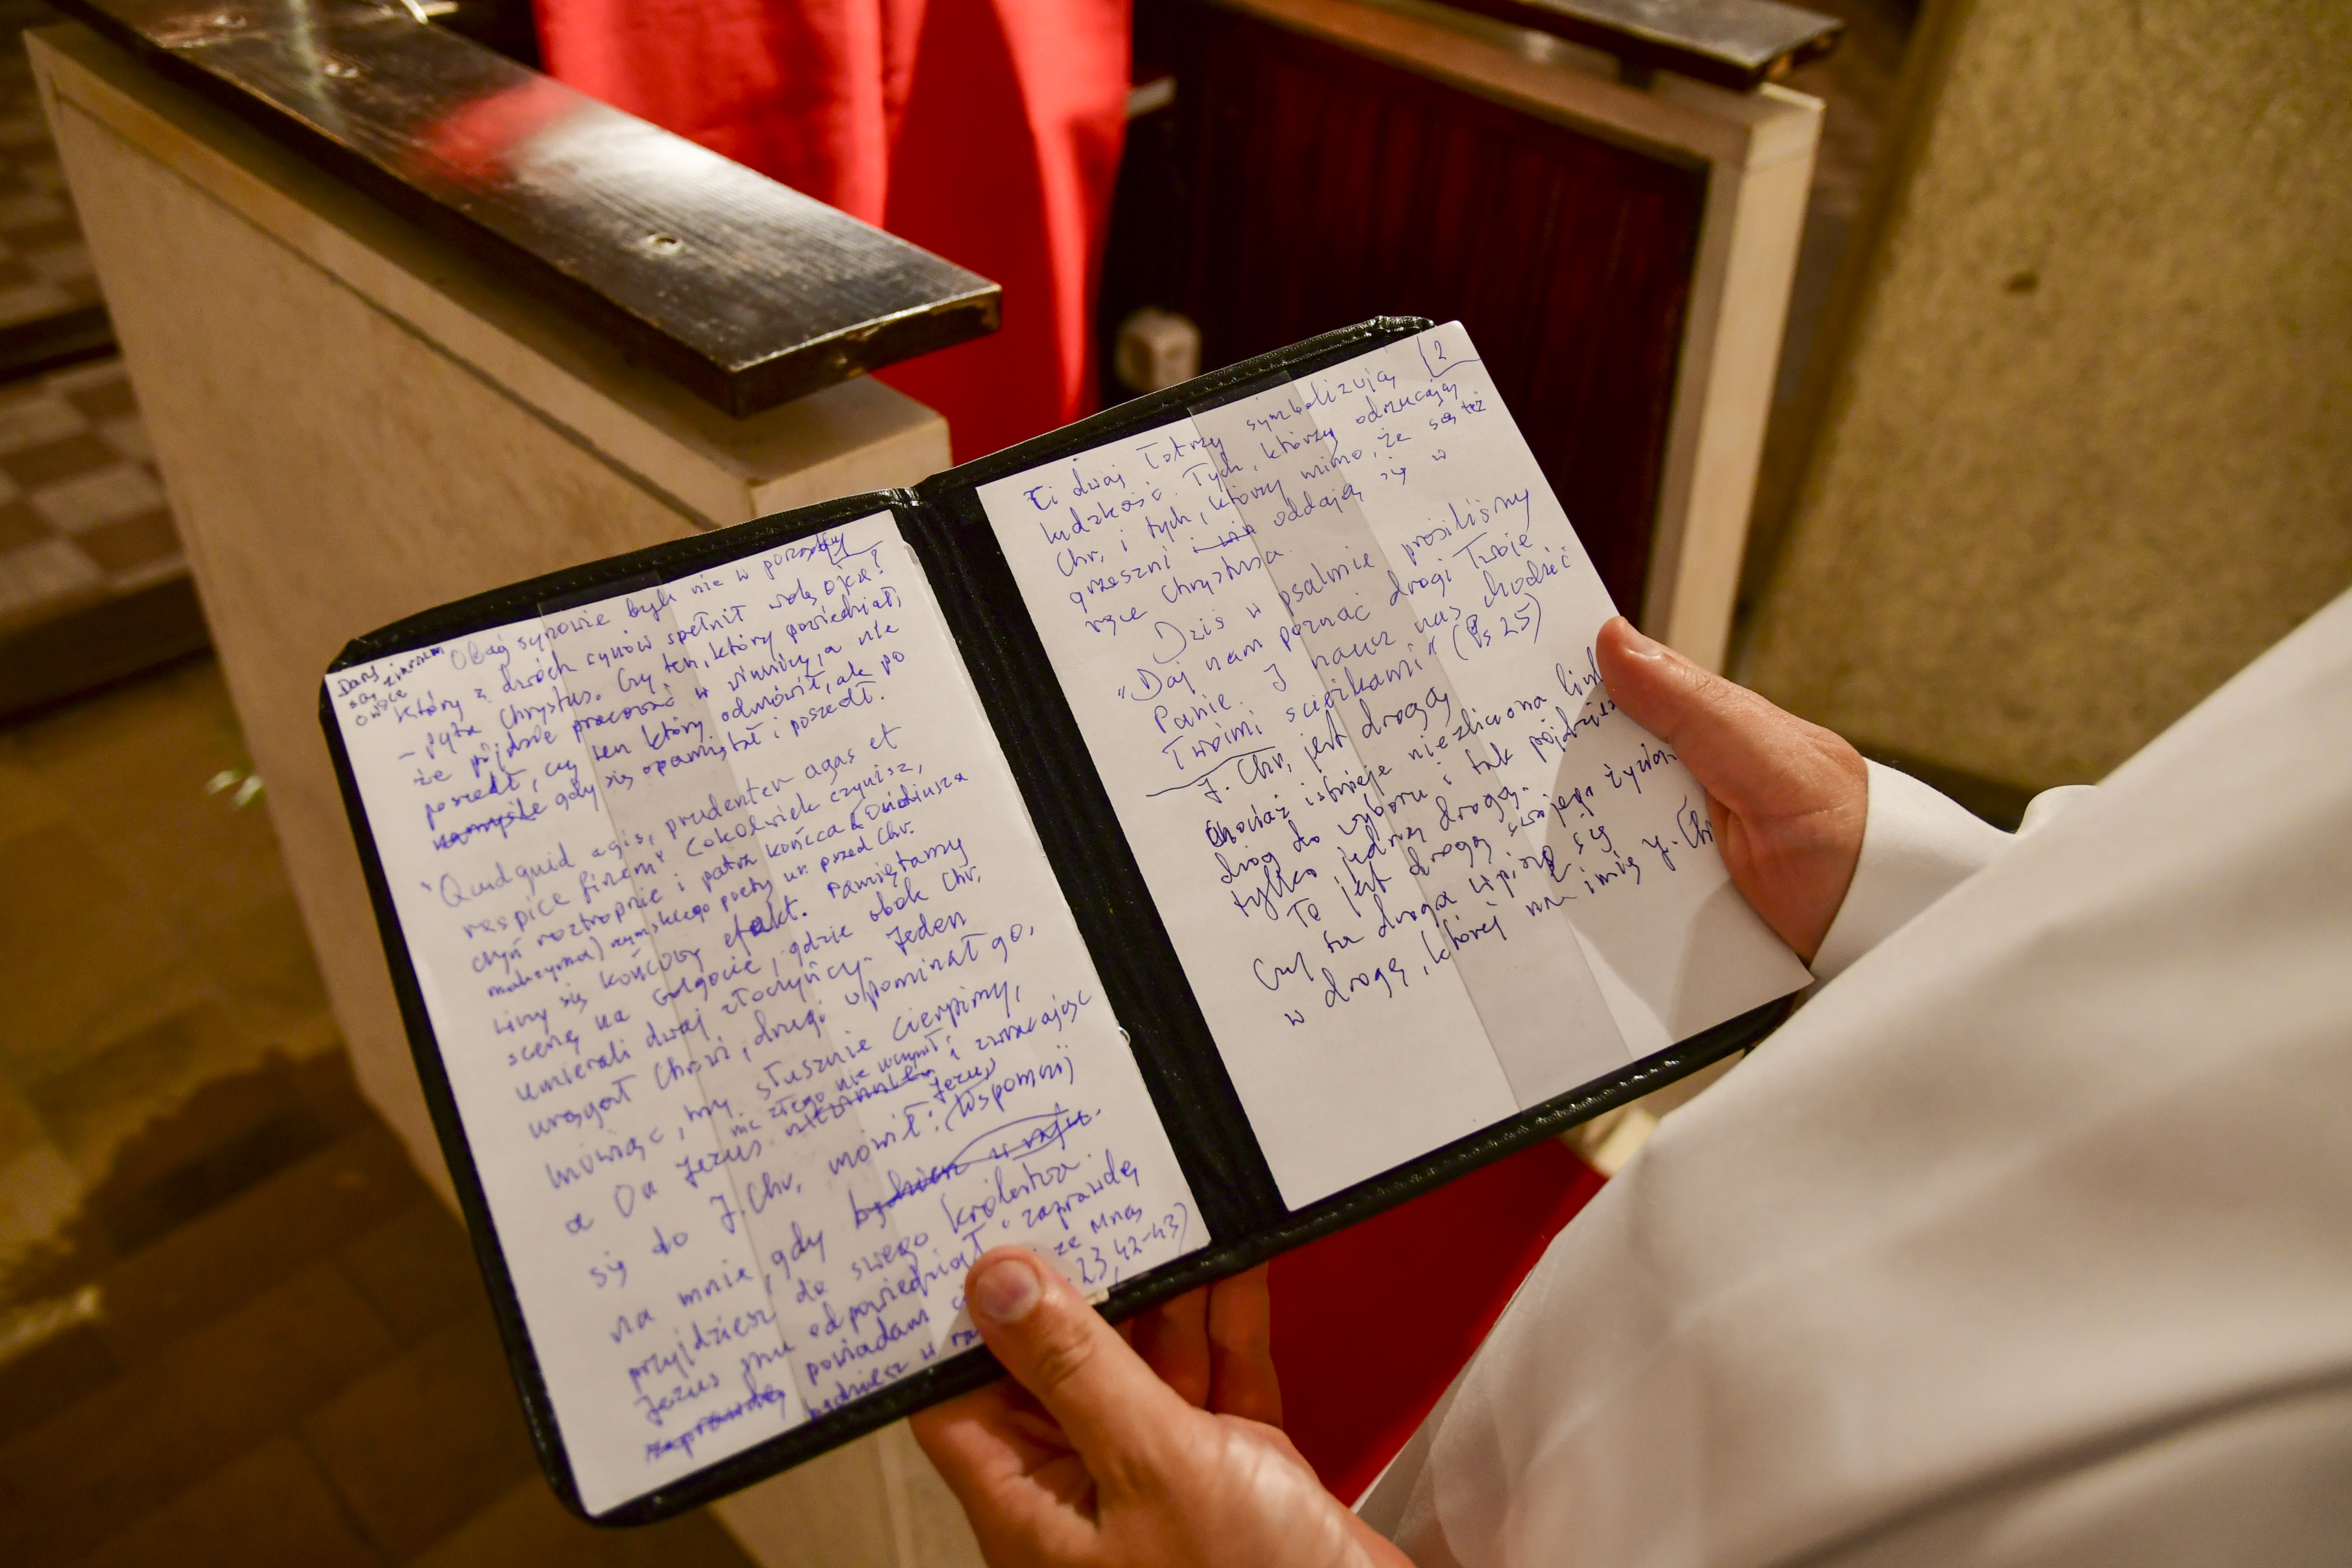 Obaj synowie byli nie w porządku
Który z dwóch synów spełnił wolę ojca?
– pyta Chrystus. Czy ten, który powiedział,
że pójdzie pracować w winnicy, a nie
poszedł, czy ten który odmówił, ale po
namyśle gdy się opamiętał i poszedł.
"Quidquid agis, prudenter agas et
respice finem" Cokolwiek czynisz,
czyń roztropnie i patrz końca (Owidiusza
maksyma) rzymskiego poety ur. przed Chr.
Liczy się końcowy efekt. Pamiętamy
scenę na Golgocie, gdzie obok Chr.
umierali dwaj złoczyńcy. Jeden
urągał Chrowi, drugi upominał go,
mówiąc, my słusznie cierpimy,
nic złego nie uczynił,
a On Jezus i zwracając
się do J. Chr. mówił: Jezu, Wspomnij
na mnie, gdy będziesz w raju.
przyjdziesz do swego królestwa
Jezus mu odpowiedział "zaprawdę
zaprawdę powiadam ze Mną
będziesz w 23,42-43)
2
Ci dwaj Łotrzy symbolizują
ludzkość. Tych, którzy odrzucają
Chr. i tych, którzy mimo, że są też
grzeszni i oddają się w
ręce Chrystusa.
Dziś w psalmie prosiliśmy
"Daj nam poznać drogi Twoje
Panie. I naucz nas chodzić
Twoimi ścieżkami" (Ps 25)
J. Chr. jest drogą
Chociaż istnieje niezliczona
dróg do wyboru i tak pójdziesz
tylko jedną drogą.
To jest droga twojego życia
Czy ta droga wpisze się
w drogę, której na imię J. Chr